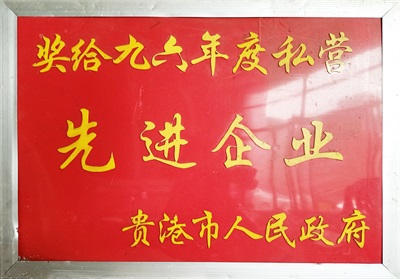 奖给九六年度私营
先进企业
贵港市人民政府